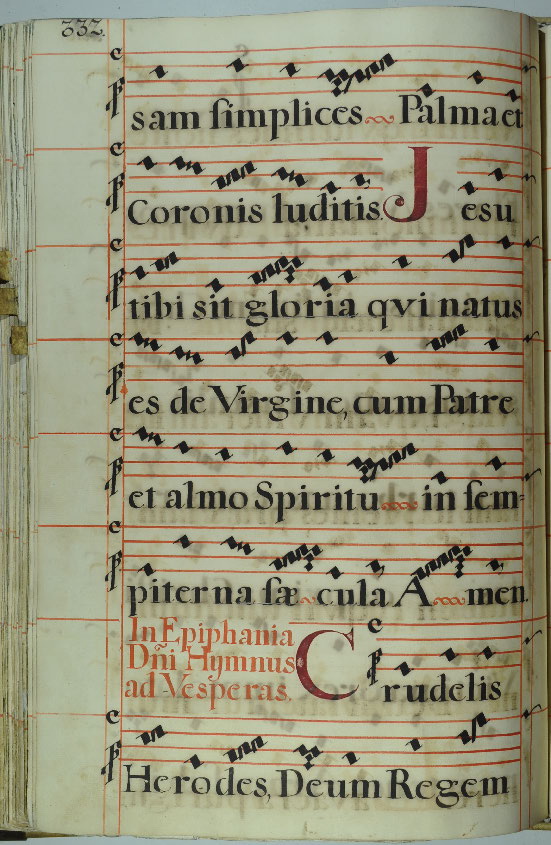 332.
sam ſimplices Palma et
Coronis luditis. Jesu
tibi sit gloria qvi natus
es de Virgine, cum Patre
et almo Spiritu in ſem=
piterna ſæcula Amen.
In Epiphania
Dñi Hymnus
ad Vesperas.
Crudelis
Herodes, Deum Regem